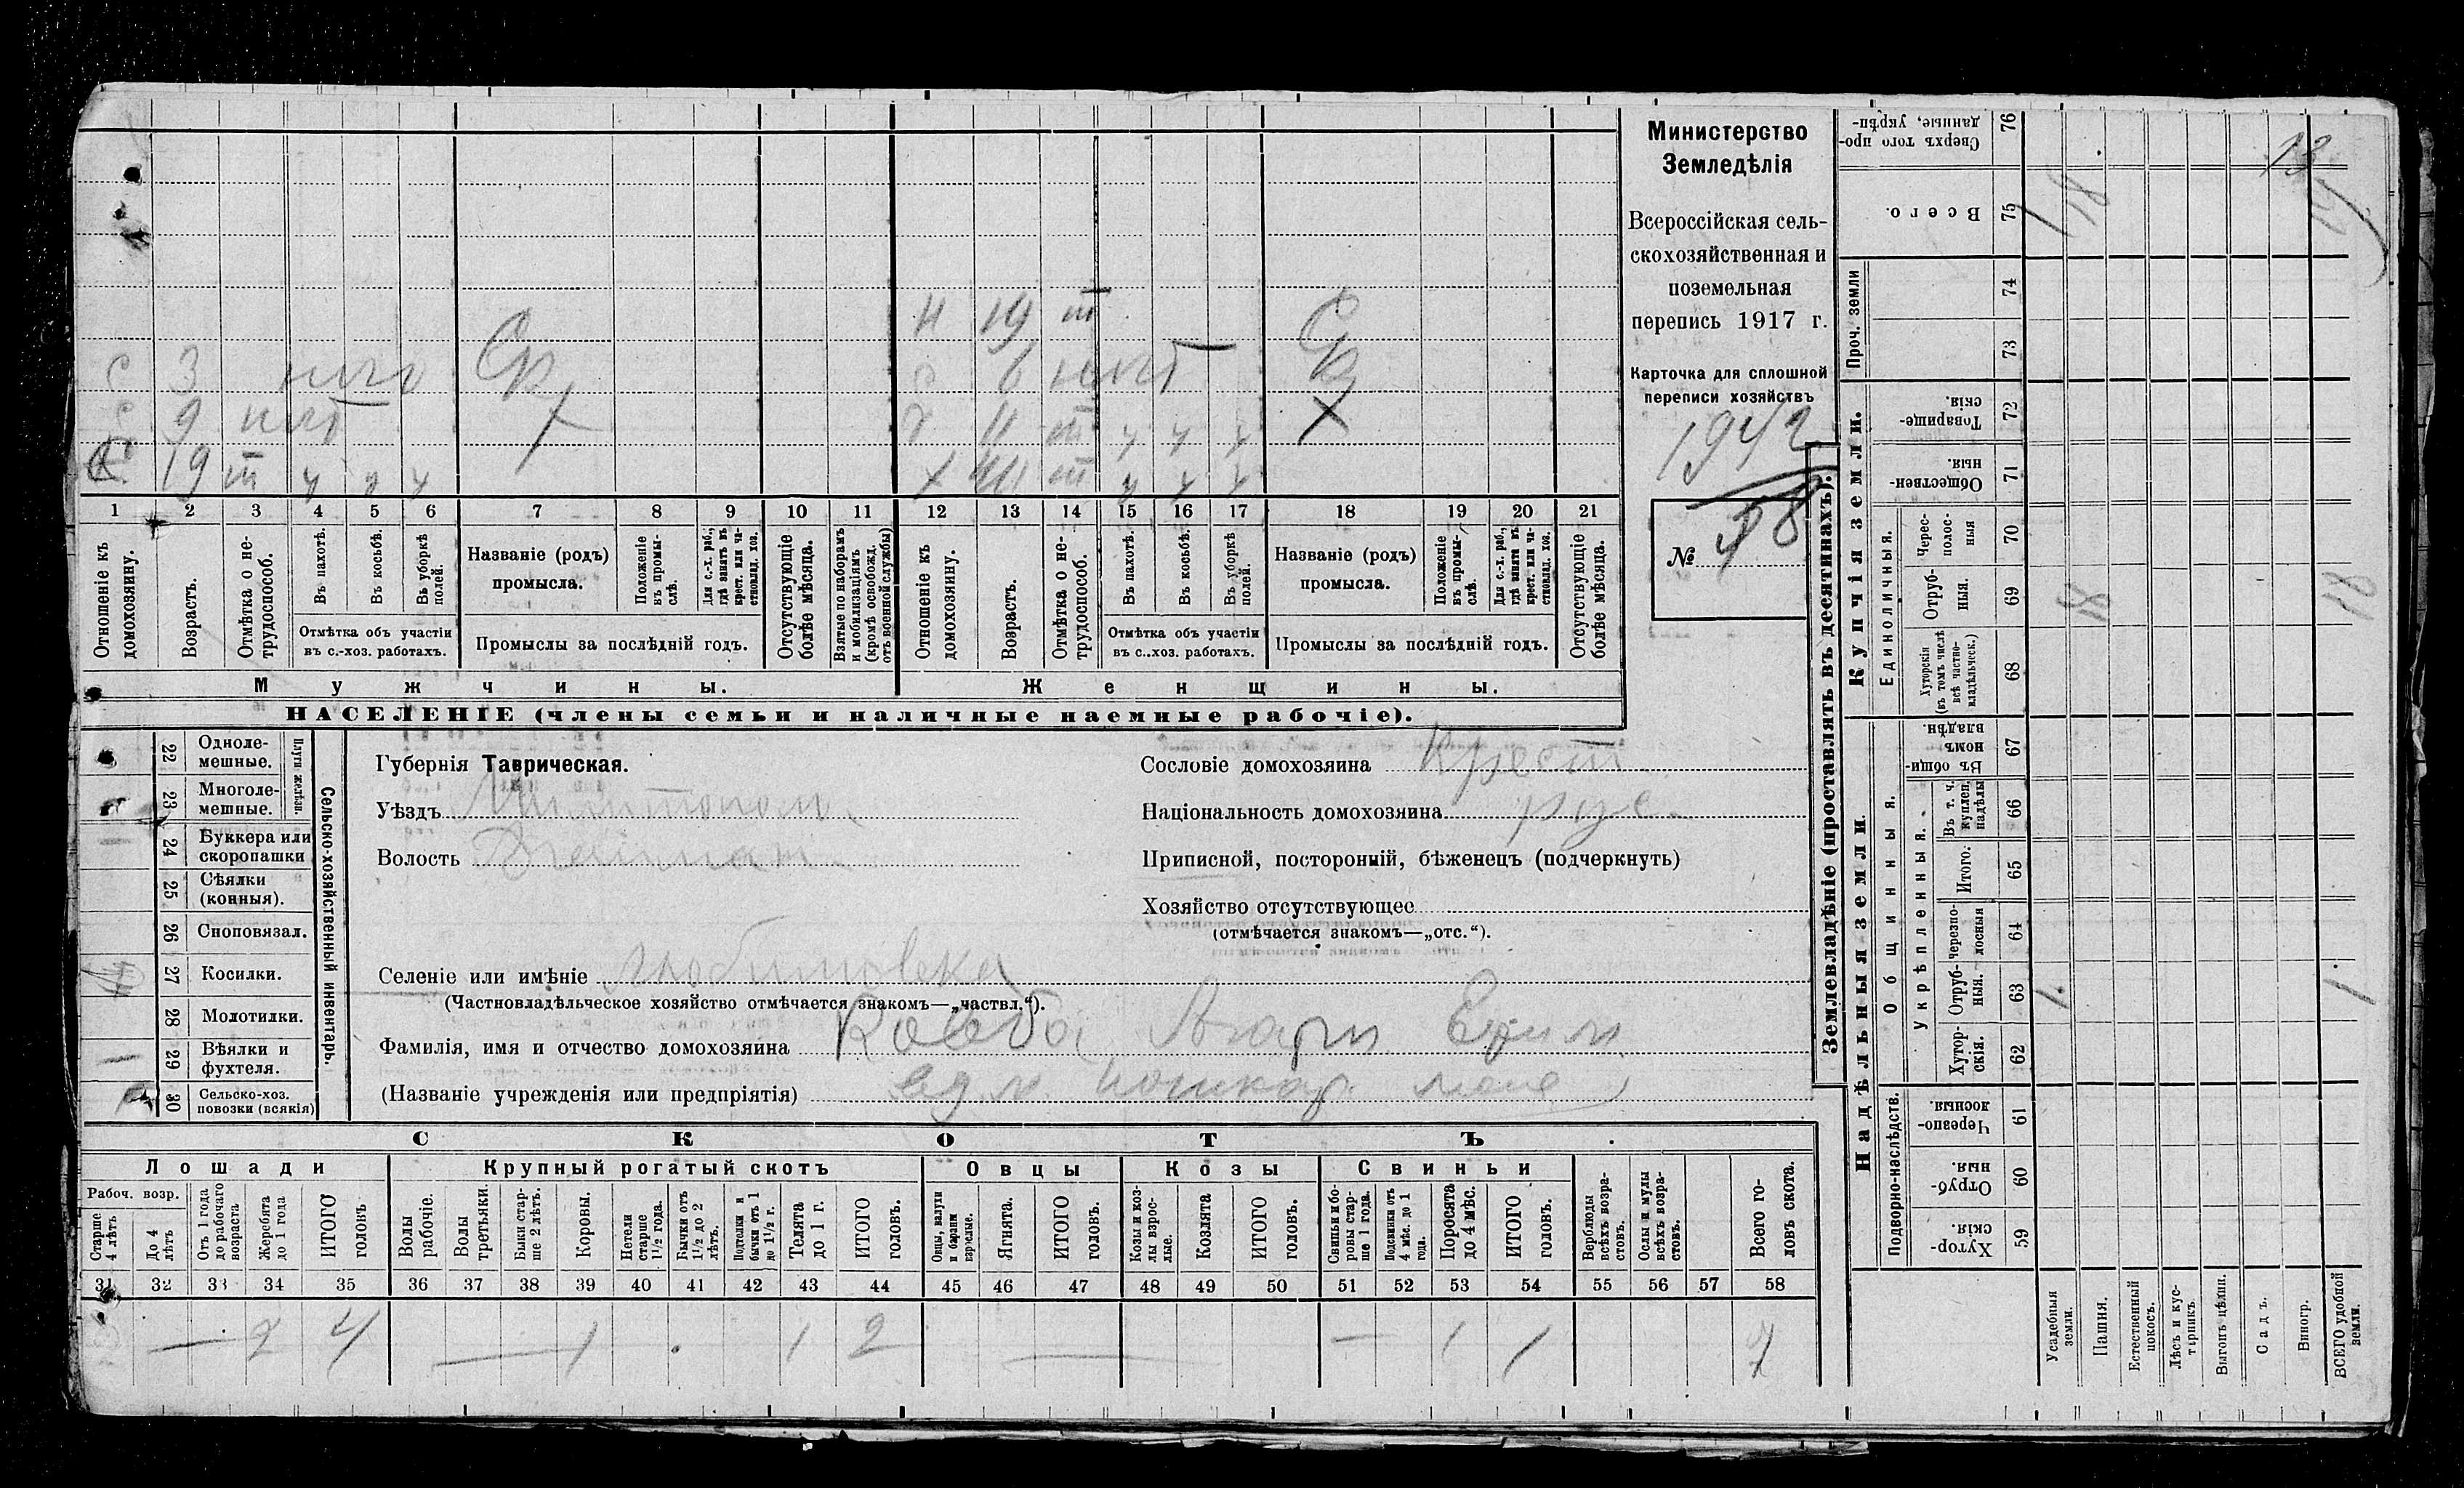 Министерство
Земледѣлія
Всероссійская сель-
скохозяйственная и
поземельная
перепись 1917 г.
Карточка для сплошной
переписи хозяйствъ
1942
№ 58
Н 19 т
3 Ср
9 Х
19 т
11 т
1 2 3 4 5 6 7 8 9 10 11 12 13 14 15 16 17 18 19 20 21
Отношеніе къ домохозяину.
Возрастъ.
Отмѣтка о не-трудоспособ.
Въ пахотѣ.
Въ косьбѣ.
Въ уборкѣ полей.
Отмѣтка объ участіи
въ с.-хоз. работахъ.
Названіе (родъ)
промысла.
Положеніе въ промы-слѣ.
Для с.-х. раб., гдѣ занятъ въ крест. или ча-стновлад. хоз.
Промыслы за послѣдній годъ.
Отсутствующіе болѣе мѣсяца.
Взятые по наборамъ и мобилизаціямъ (кромѣ освобожд. отъ военной службы)
Отношеніе къ домохозяину.
Возрастъ.
Отмѣтка о не-трудоспособ.
Въ пахотѣ.
Въ косьбѣ.
Въ уборкѣ полей.
Отмѣтка объ участіи
въ с..хоз. работахъ.
Названіе (родъ)
промысла.
Положеніе въ промы-слѣ.
Для с.-х. раб., гдѣ занята въ крест. или ча-стновлад. хоз.
Промыслы за послѣдній годъ.
Отсутствующіе болѣе мѣсяца.
Мужчины.
Женщины.
НАСЕЛЕНІЕ (члены семьи и наличные наемные рабочіе).
Сельско-хозяйственный инвентарь.
Плуги желѣзн.
22 Одноле-мешные.
23 Многоле-мешные.
24 Буккера или скоропашки
25 Сѣялки (конныя).
26 Сноповязал.
27 Косилки.
28 Молотилки.
29 Вѣялки и фухтеля.
30 Сельско-хоз. повозки (всякія)
Губернія Таврическая.
Уѣздъ Мелитопол.
Волость
Селеніе или имѣніе Любимовка
(Частновладѣльческое хозяйство отмѣчается знакомъ—„частвл.“).
Фамилія, имя и отчество домохозяина
(Названіе учрежденія или предпріятія)
Сословіе домохозяина Крест
Національность домохозяина рус.
Приписной, посторонній, бѣженецъ (подчеркнуть)
Хозяйство отсутствующее
(отмѣчается знакомъ—„отс.“).
СКОТЪ
Лошади
Крупный рогатый скотъ
Овцы
Козы
Свиньи
Рабоч. возр.
Старше 4 лѣтъ
До 4 лѣтъ
Отъ 1 года до рабочаго возраста
Жеребята до 1 года
ИТОГО головъ
Волы рабочіе.
Волы третьяки.
Быки стар-ше 2 лѣтъ.
Коровы.
Нетели старше 1½ года.
Бычки отъ 1½ до 2 лѣтъ.
Подтелки и бычки отъ 1 до 1½ г.
Телята до 1 г.
ИТОГО головъ.
Овцы, валухи и бараны взрослые.
Ягнята.
ИТОГО головъ.
Козы и коз-лы взрос-лые.
Козлята
ИТОГО головъ.
Свиньи и бо-ровы стар-ше 1 года.
Подсвинки отъ 4 мѣс. до 1 года.
Поросята до 4 мѣс.
ИТОГО головъ.
Верблюды всѣхъ возра-стовъ.
Ослы и мулы всѣхъ возра-стовъ.
Всего го-ловъ скота.
31 32 33 34 35 36 37 38 39 40 41 42 43 44 45 46 47 48 49 50 51 52 53 54 55 56 57 58
— 2 4 — 1 1 2 — — 1 1 7
Землевладѣніе (проставлять въ десятинахъ).
Купчія земли.
Надѣльныя земли.
Проч. земли
Единоличныя.
Общинныя.
Укрѣпленныя.
Подворно-наслѣдств.
Сверхъ того про-данные, укрѣп- 76
Всего. 75
74
73
Товарище-скія. 72
Обществен-ныя. 71
Черес-полос-ныя 70
Отруб-ныя. 69
Хуторскія (въ томъ числѣ всѣ частно-владѣльческ.) 68
Въ общи-номъ владѣн. 67
Въ т. ч. куплен. надѣлы 66
Итого. 65
Черезпо-лосныя 64
Отруб-ныя. 63
Хутор-скія. 62
Черезпо-лосныя. 61
Отруб-ныя. 60
Хутор-скія. 59
Усадебныя земли.
Пашня.
Естественный покосъ.
Лѣсъ и кус-тарникъ.
Выгонъ цѣлин.
Садъ.
Виногр.
ВСЕГО удобной земли.
1 18
18 18
1. 1.
13